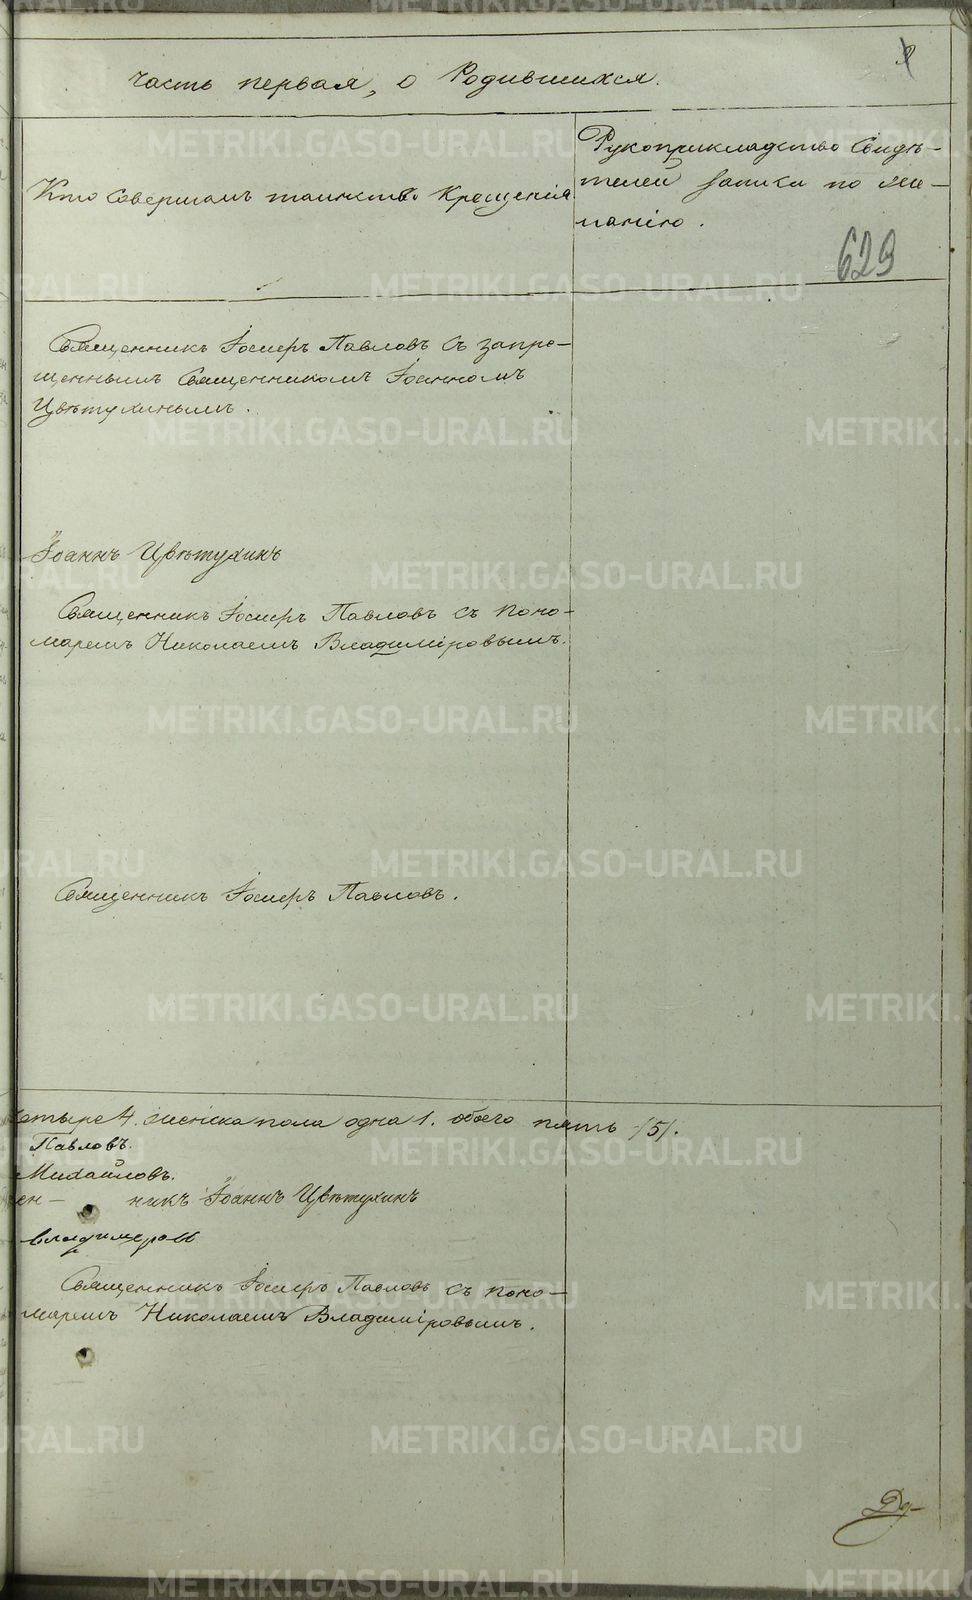 часть первая, о Родившихся.
Кто совершалъ таинство Крещенія
Рукоприкладство Свидѣ-
телей записи по же-
ланію.
629
Священникъ Іосифъ Павловъ съ запре-
щеннымъ Священникомъ Іоанномъ
Цвѣтухинымъ.
Іоаннъ Цвѣтухинъ
Священникъ Іосифъ Павловъ съ поно-
маремъ Николаемъ Владиміровымъ.
Священникъ Іосифъ Павловъ.
етыре 4. женска пола одна 1. обоего пять /5/.
Павловъ.
Михайловъ.
ен- никъ Іоаннъ Цвѣтухинъ
Владимеровъ
Священникъ Іосифъ Павловъ съ поно-
маремъ Николаемъ Владиміровымъ.
METRIKI.GASO-URAL.RU